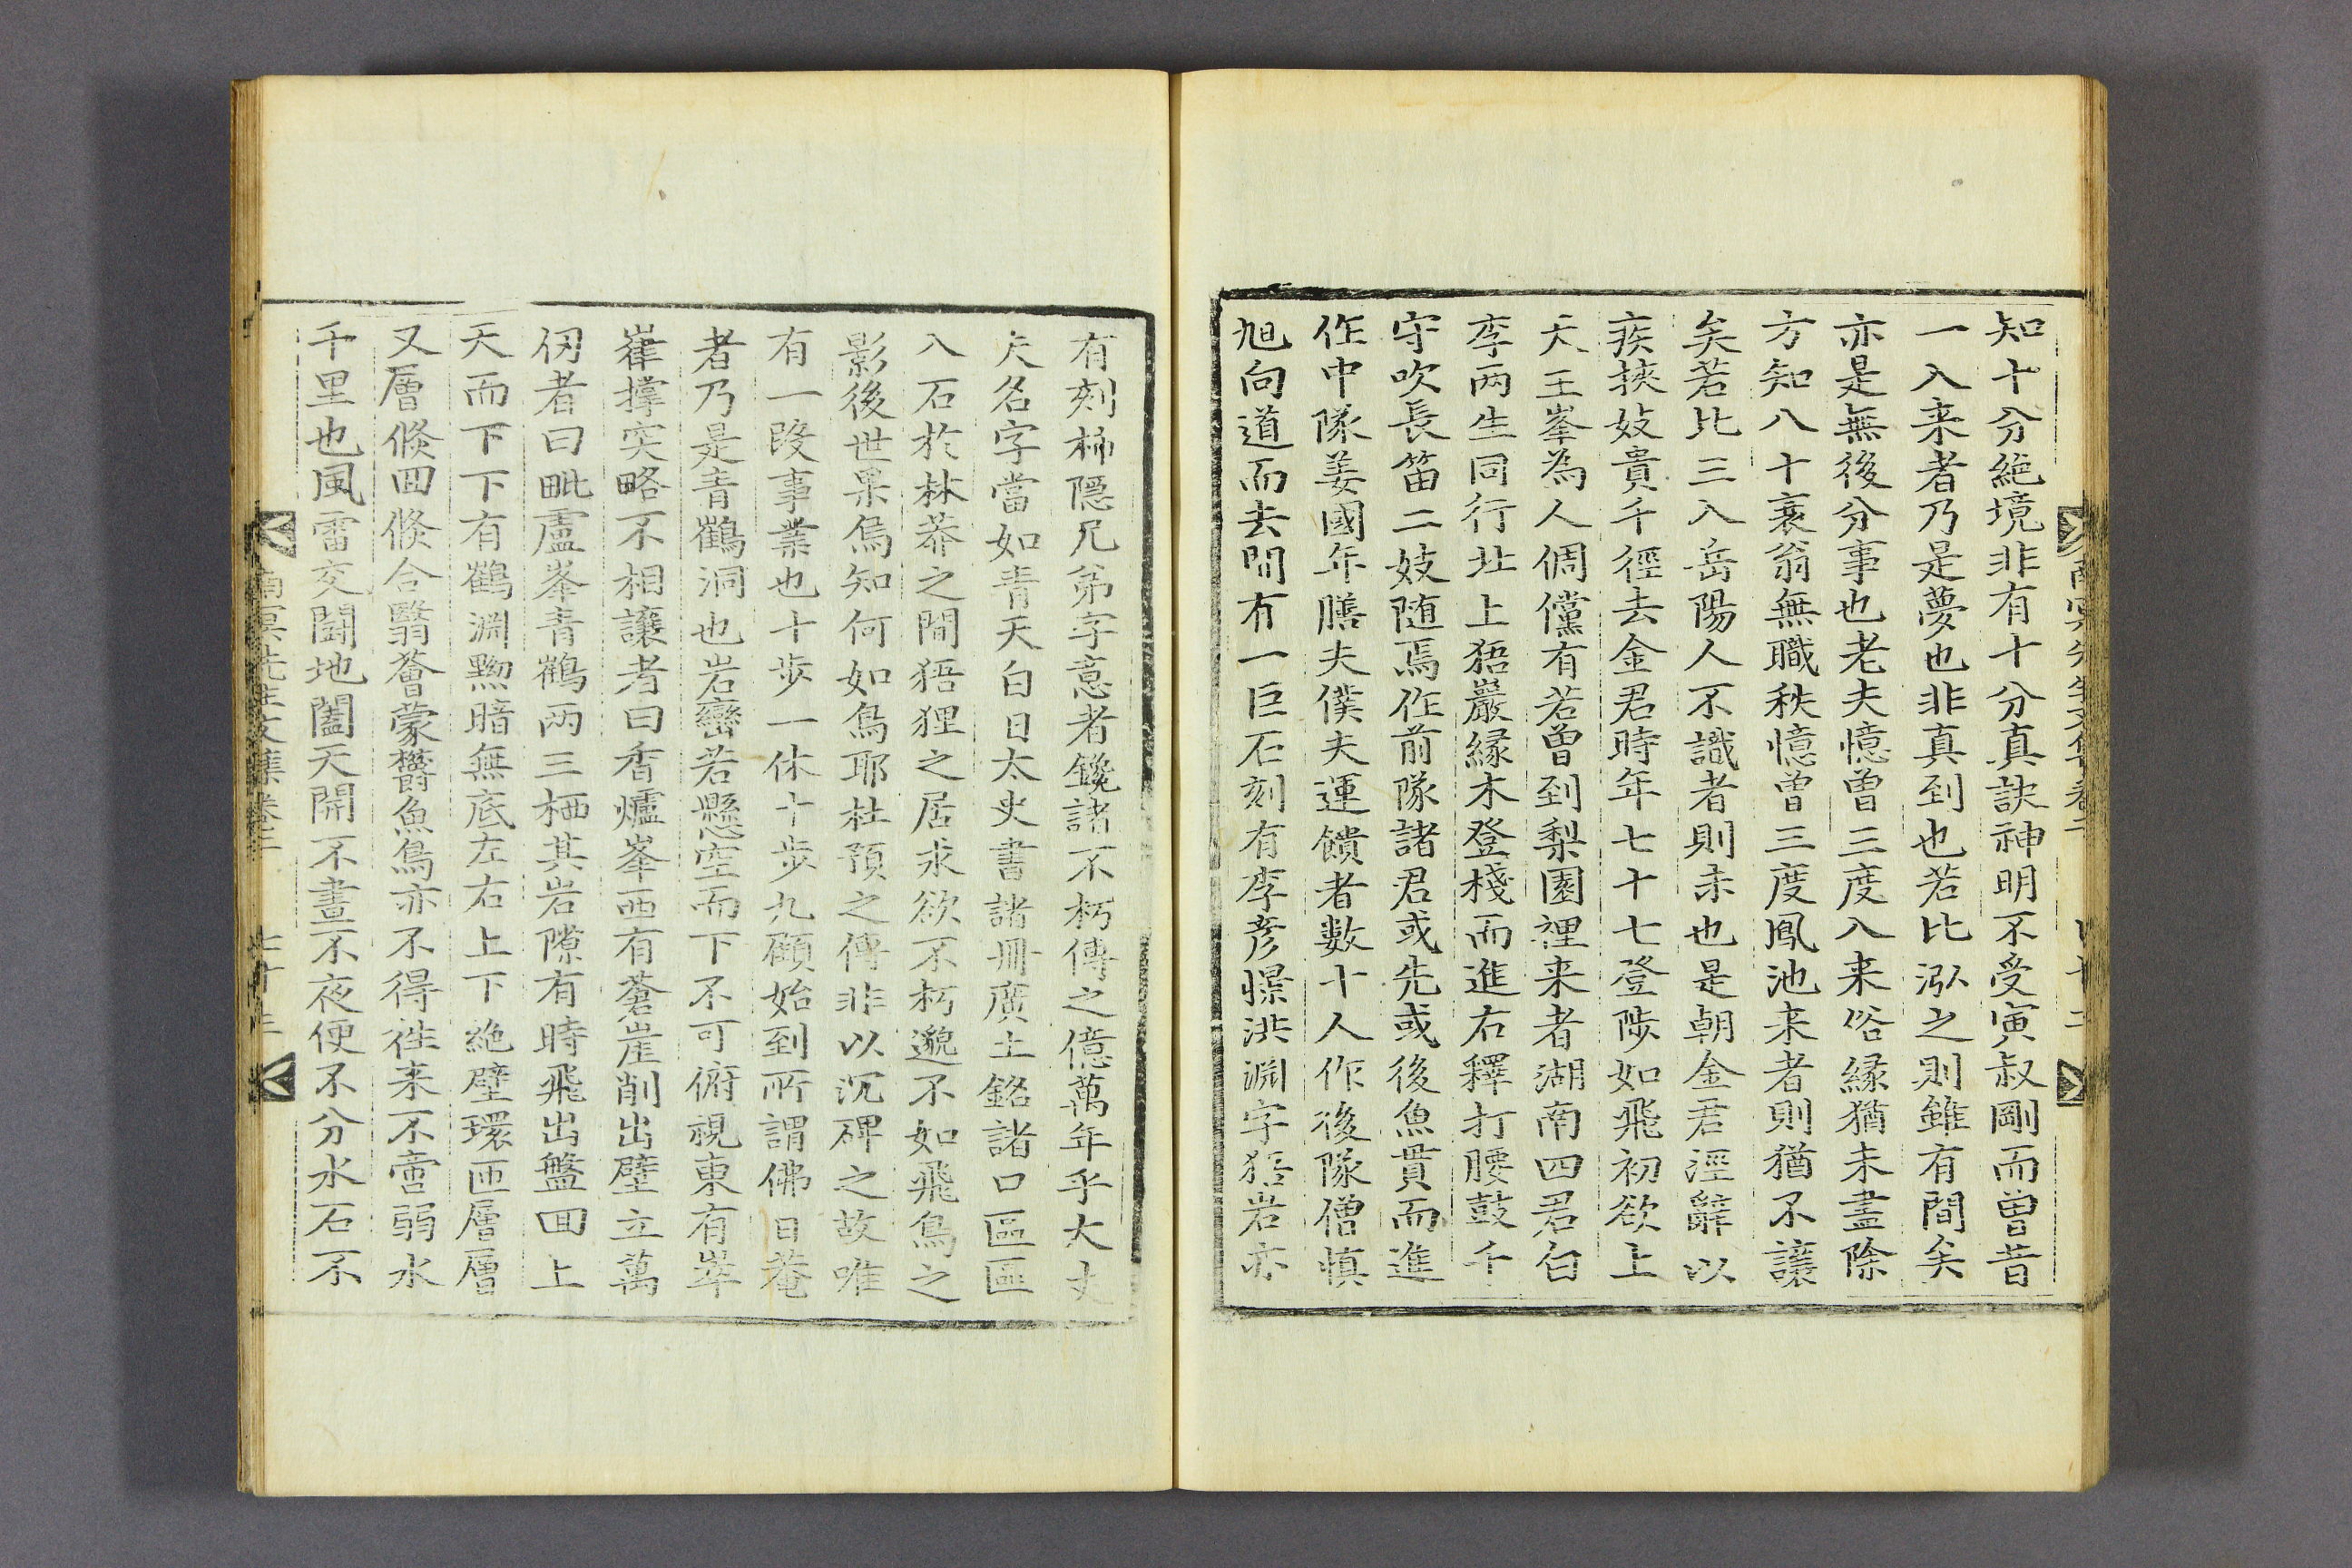 知十分絶境非有十分真訣神明不受寅叔剛而曽昔
一入来者乃是夢也非真到也若比泓之則雖有間矣
亦是無後分事也老夫憶曽三度入来俗縁猶未盡除
方知八十衰翁無職秩憶曽三度鳳池来者則猶不讓
矣若比三入岳陽人不識者則未也是朝金君涇辭以
疾挾妓貴千徑去金君時年七十七登陟如飛初欲上
天王峯為人倜儻有若曽到梨園裡来者湖南四君白
李両生同行北上㹳巖縁木登棧而進右釋打腰鼓千
守吹長笛二妓随焉作前隊諸君或先或後魚貫而進
作中隊姜國年膳夫僕夫運饋者數十人作後隊僧慎
旭向道而去間有一巨石刻有李彦憬洪淵字㹳岩亦
有刻柹隠兄弟字意者鑱諸不朽傳之億萬年乎大丈
夫名字當如青天白日太史書諸冊廣土銘諸口區區
入石於林莽之間㹳狸之居求欲不朽邈不如飛鳥之
影後世果烏知何如鳥耶杜預之傳非以沉碑之故唯
有一段事業也十歩一休十歩九顧始到所謂佛日菴
者乃是青鶴洞也岩巒若懸空而下不可俯視東有崒
嵂撑突略不相讓者曰香爐峯西有蒼崖削出壁立萬
仞者曰毗盧峯青鶴両三栖其岩隙有時飛出盤回上
天而下下有鶴淵黝暗無底左右上下絶壁環匝層層
又層倐回倐合翳薈蒙欝魚鳥亦不得徃来不啻弱水
千里也風雷交闘地闔天開不晝不夜便不分水石不
南冥先生文集卷二